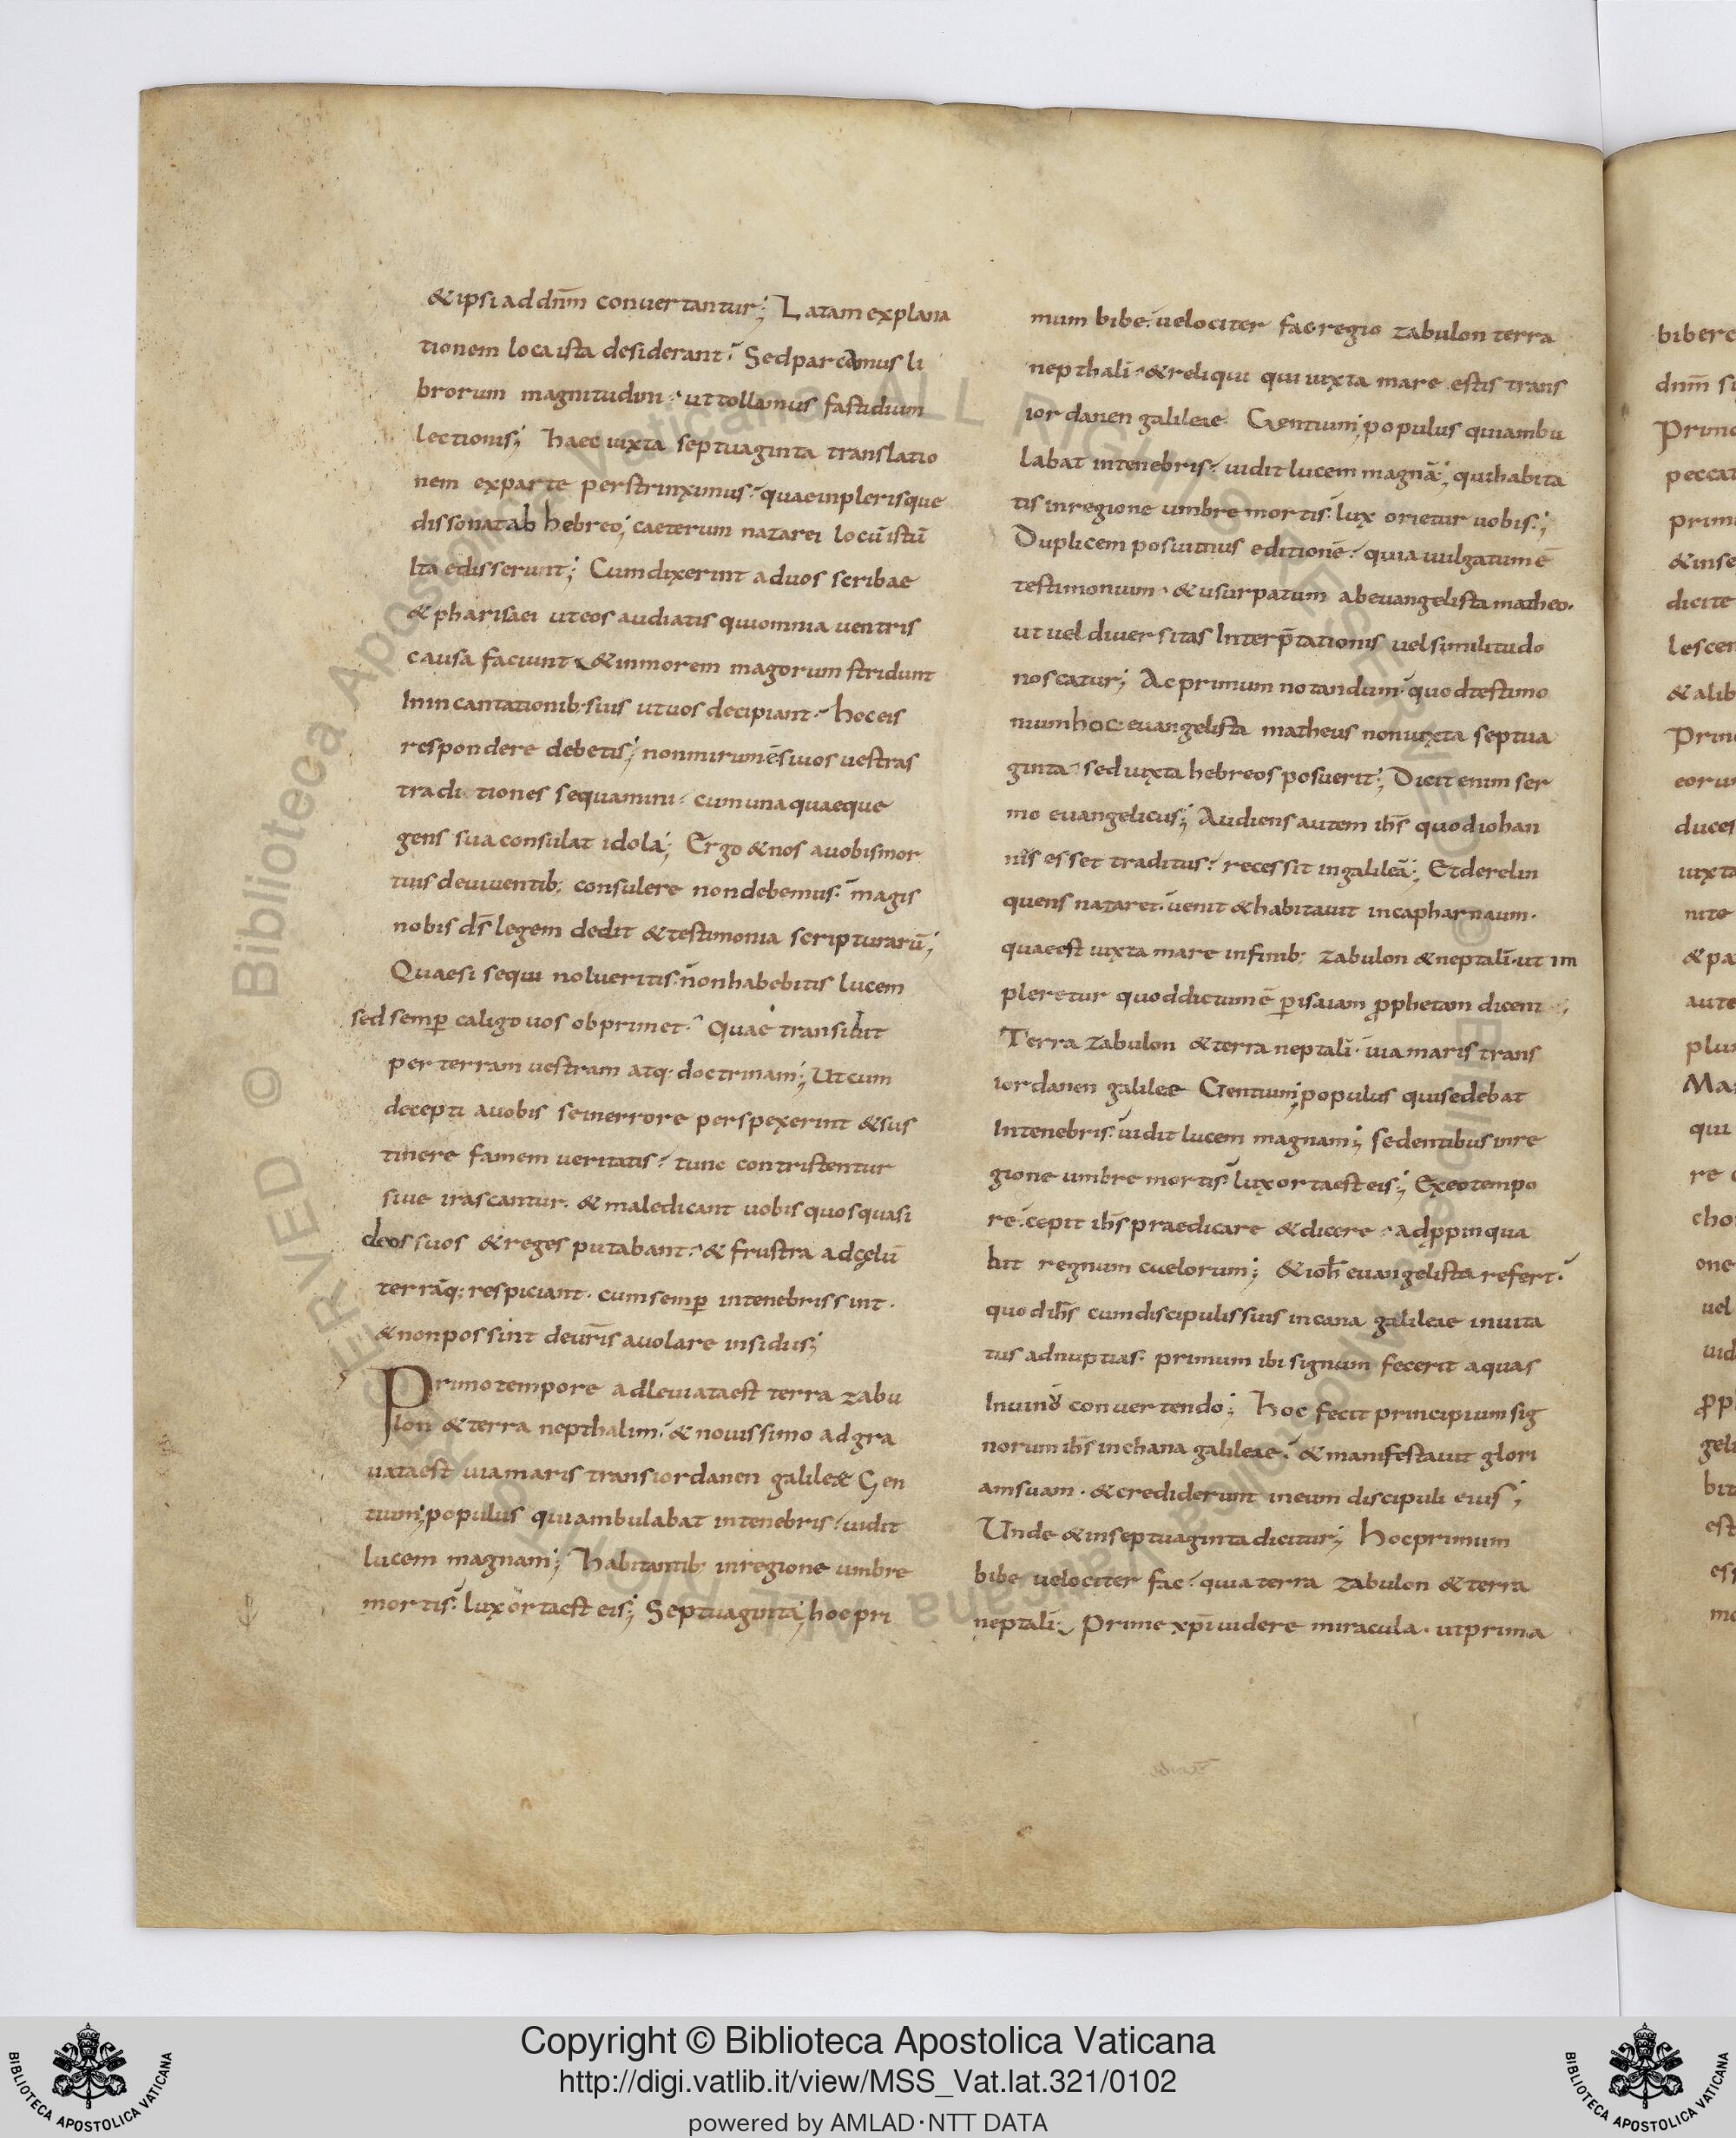 & ipsi ad dnm̄ conuertantur; Latam explana
tionem loca ista desiderant; Sed parcamus li
brorum magnitudini. ut tollamus fastidium
lectionis; haec iuxta septuaginta translatio
nem ex parte perstrinximus. quae in plerisque
dissonat ab hebreo; caeterum nazarei locū istū
Ita edisserunt; Cum dixerint ad uos scribae
& pharisaei ut eos audiatis qui omnia uentris
causa faciunt & in morem magorum stridunt
In incantationib; suis ut uos decipiant. hoc eis
respondere debetis; non mirum ē si uos uestras
traditiones sequamini. cum una quaeque
gens sua consulat idola; Ergo & nos a uobis mor
tuis de uiuentib; consulere non debemus. magis
nobis ds̄ legem dedit & testimonia scripturarū;
Quae si sequi nolueritis. non habebitis lucem
sed semp̄ caligo uos obprimet. Quae transibit
per terram uestram atq; doctrinam; Ut cum
decepti a uobis se in errore perspexerint & sus
tinere famem ueritatis. tunc contristentur
siue irascantur. & maledicant uobis quos quasi
deos suos & reges putabant. & frustra ad cęlū
terrāq; respiciant. cum semp̄ in tenebris sint.
& non possint de ur̄is auolare insidiis;
Primo tempore adleuiata est terra zabu
lon & terra nepthalim. & nouissimo adgra
uata est uia maris trans iordanen galileæ Gen
tium; populus qui ambulabat in tenebris. uidit
lucem magnam; habitantib; in regione umbre
mortis. lux orta est eis; Septuaginta; hoc pri
mum bibe. uelociter fac regio zabulon terra
nepthali. & reliqui qui iuxta mare estis trans
iordanen galileae Gentium; populus qui ambu
labat in tenebris. uidit lucem magnā; qui habita
tis in regione umbre mortis. lux orietur uobis;
Duplicem posuimus editionē. quia uulgatum ē
testimonium. & usurpatum ab euangelista matheo.
ut uel diuersitas Interp̄tationis uel similitudo
noscatur; Ac primum notandum. quod testimo
nium hoc euangelista matheus non iuxta septua
ginta. sed iuxta hebreos posuerit; Dicit enim ser
mo euangelicus; Audiens autem ihs̄ quod iohan
nis esset traditus. recessit in galileā; Et derelin
quens nazaret. uenit & habitauit in capharnaum.
quae est iuxta mare in finib; zabulon & neptali. ut im
pleretur quod dictum ē p̱ isaiam p̱phetam dicent ;
Terra zabulon & terra neptali. uia maris trans
iordanen galileæ Gentium; populus qui sedebat
In tenebris. uidit lucem magnam; sedentibus in re
gione umbre mortis. lux orta est eis; Ex eo tempo
re. cepit ihs̄ praedicare & dicere. adp̱pinqua
bit regnum caelorum; & ioh̄ euangelista refert.
quod ihs̄ cum discipulis suis in cana galileae inuita
tus ad nuptias. primum ibi signum fecerit aquas
In uinū conuertendo; hoc fecit principium sig
norum ihs̄ in chana galileae. & manifestauit glori
am suam. & crediderunt in eum discipuli eius;
Unde & in septuaginta dicitur; hoc primum
bibe uelociter fac. quia terra zabulon & terra
neptali. Prime xp̄i uidere miracula. ut prima
bibere
peccat
dicite
& alib
duces
iuxta
& pa
qui
uel
est
Copyright © Biblioteca Apostolica Vaticana
http://digi.vatlib.it/view/MSS_Vat.lat.321/0102
powered by AMLAD·NTT DATA
BIBLIOTECA APOSTOLICA VATICANA
BIBLIOTECA APOSTOLICA VATICANA